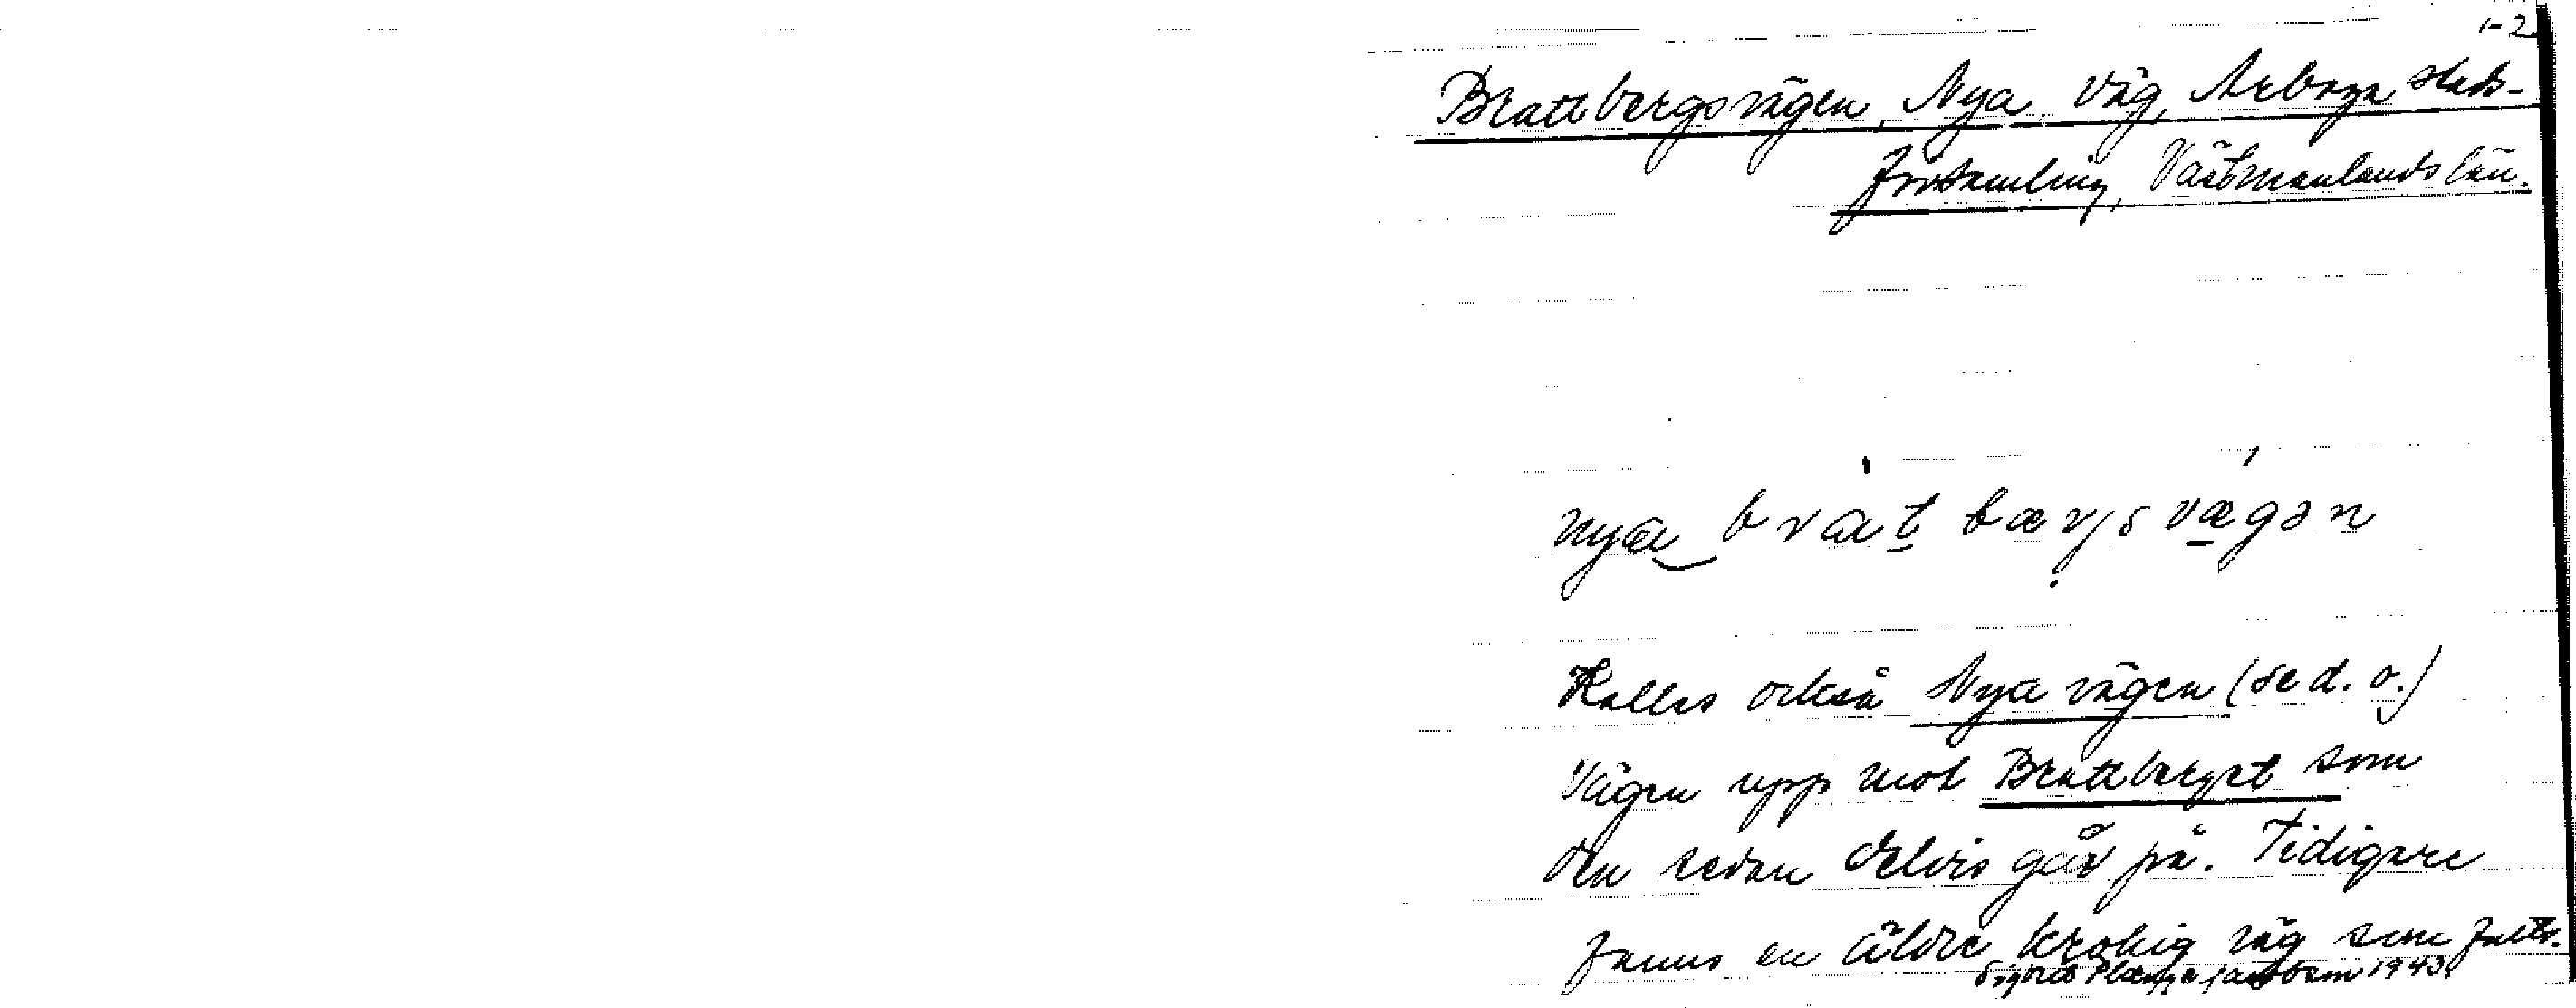 1-2
Brattbergsvägen, Nya, väg, Arboga stads-
församling, Västmanlands län.
nya brat bærjsvægən
Kallas också Nya vägen (se d. o.)
Vägen upp mot Brattberget som
den sedan delvis går på. Tidigare
fanns en äldre krokig väg som
Jacobson 1943